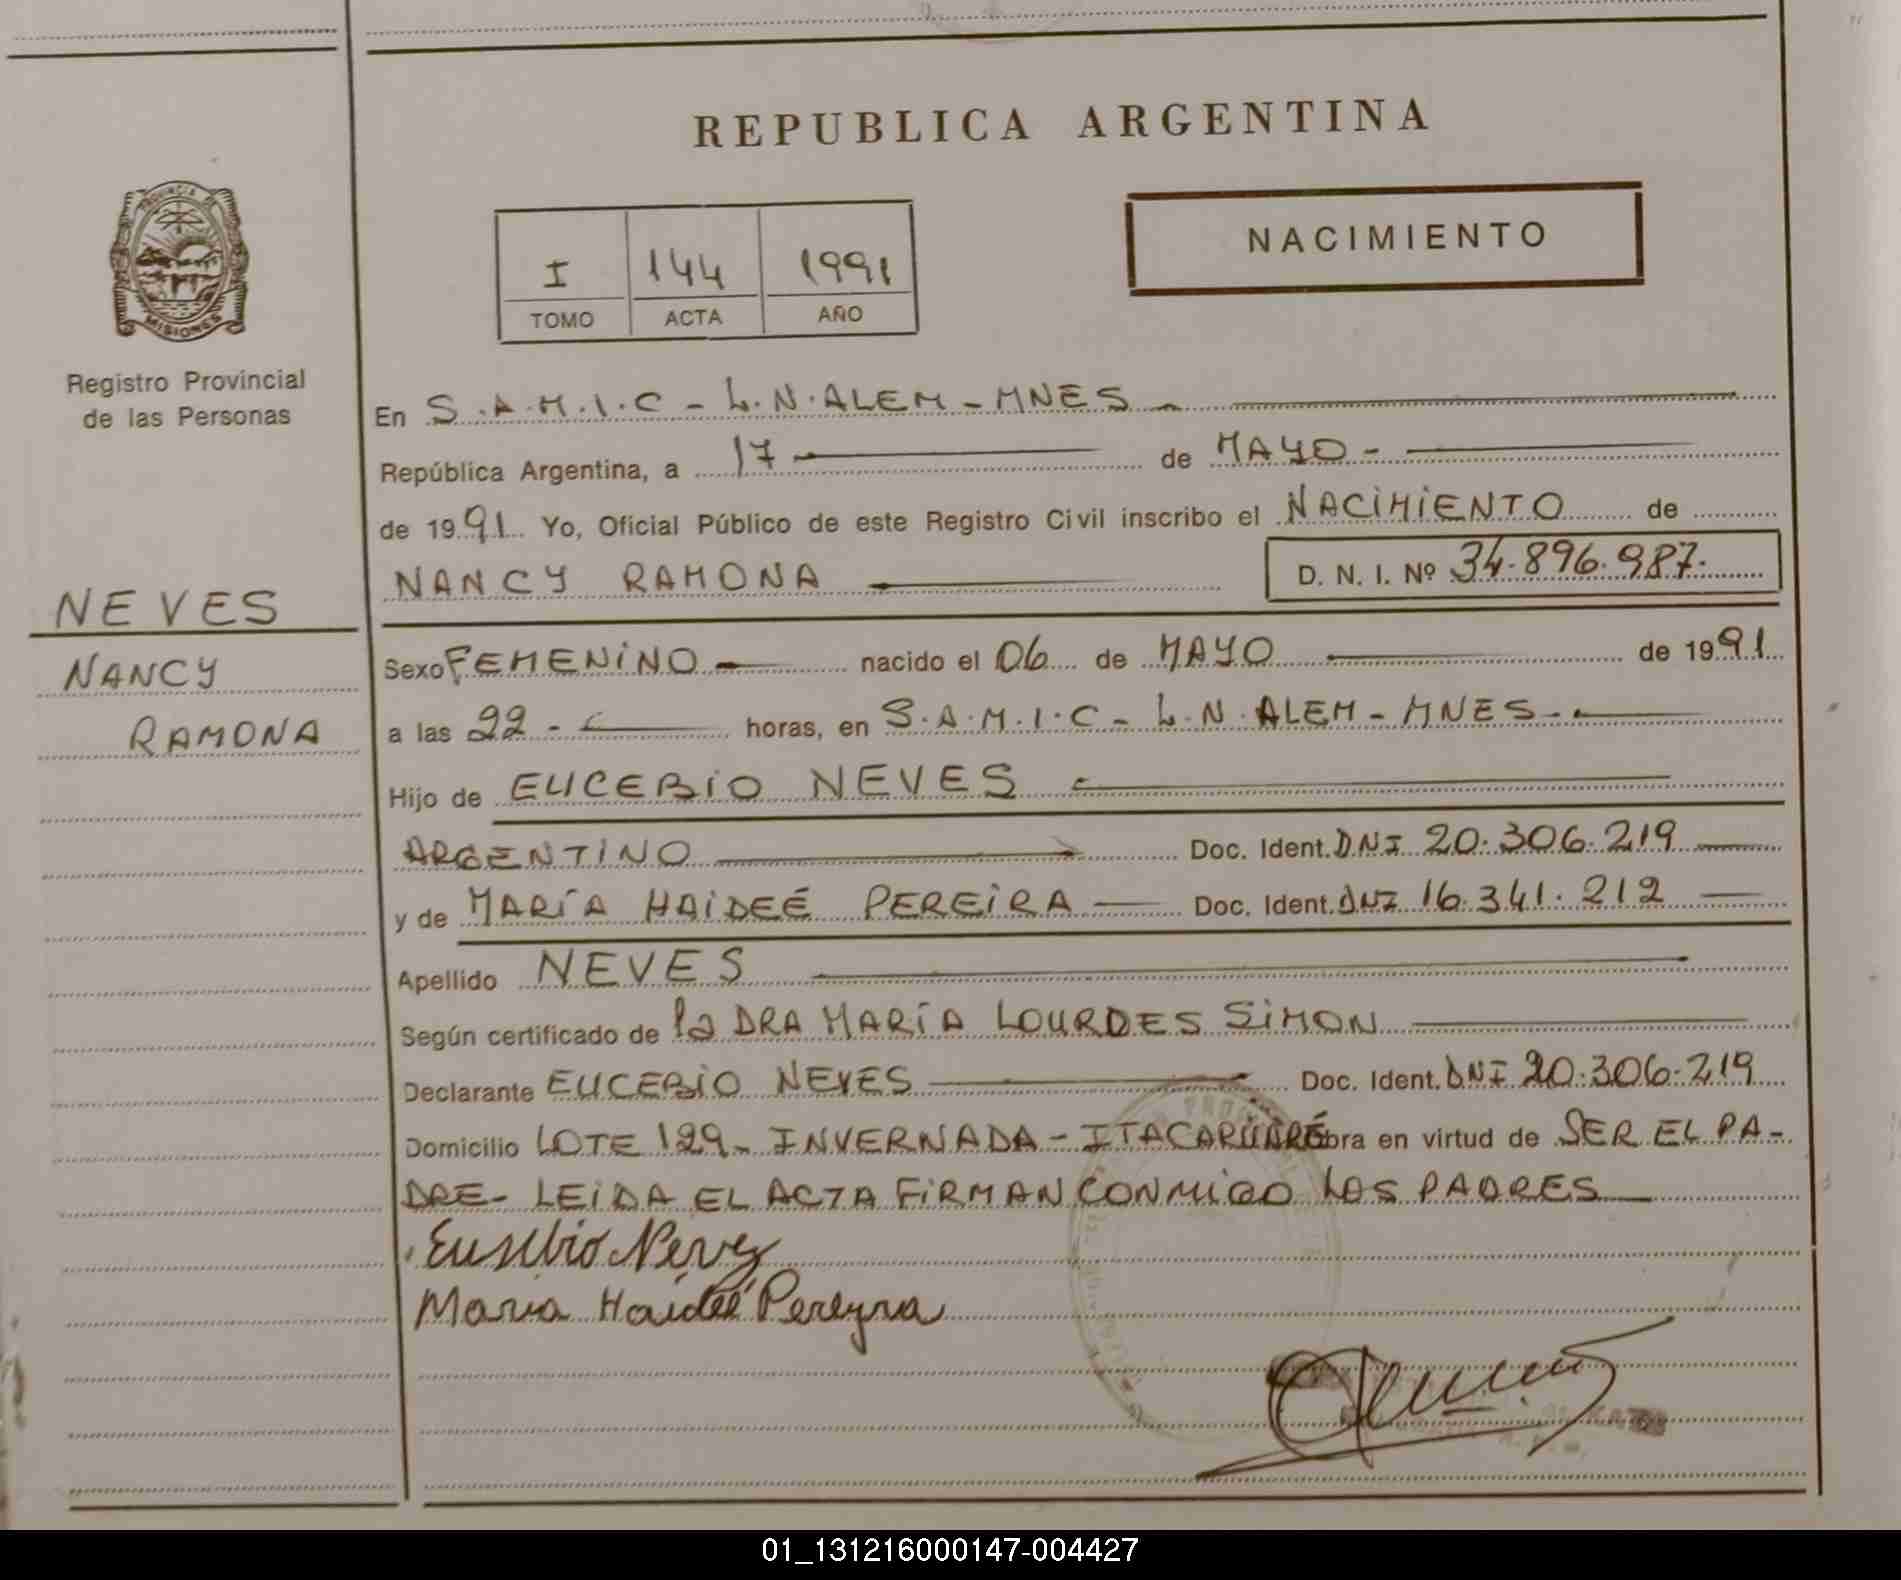 REPUBLICA ARGENTINA
PROVINCIA D
MISIONES
Registro Provincial
de las Personas
I 144 1991
TOMO ACTA AÑO
NACIMIENTO
En S.A.M.I.C - L.N.ALEM - MNES -
República Argentina, a 17 de MAYO -
de 1991. Yo, Oficial Público de este Registro Civil inscribo el NACIMIENTO de
NANCY RAMONA D. N. I. Nº 34.896.987.
NEVES
NANCY
RAMONA
Sexo FEMENINO nacido el 06 de MAYO de 1991
a las 22 - horas, en S.A.M.I.C - L.N.ALEM - MNES -
Hijo de EUCEBIO NEVES
ARGENTINO Doc. Ident. DNI 20.306.219
y de MARÍA HAIDEÉ PEREIRA Doc. Ident. DNI 16.341.212
Apellido NEVES
Según certificado de la DRA MARÍA LOURDES SIMON
Declarante EUCEBIO NEVES Doc. Ident. DNI 20.306.219
Domicilio LOTE 129 - INVERNADA - ITACARUARÉ obra en virtud de SER EL PA-
DRE - LEIDA EL ACTA FIRMAN CONMIGO LOS PADRES
Eusebio Nevez
Maria Haideé Pereyra
01_131216000147-004427